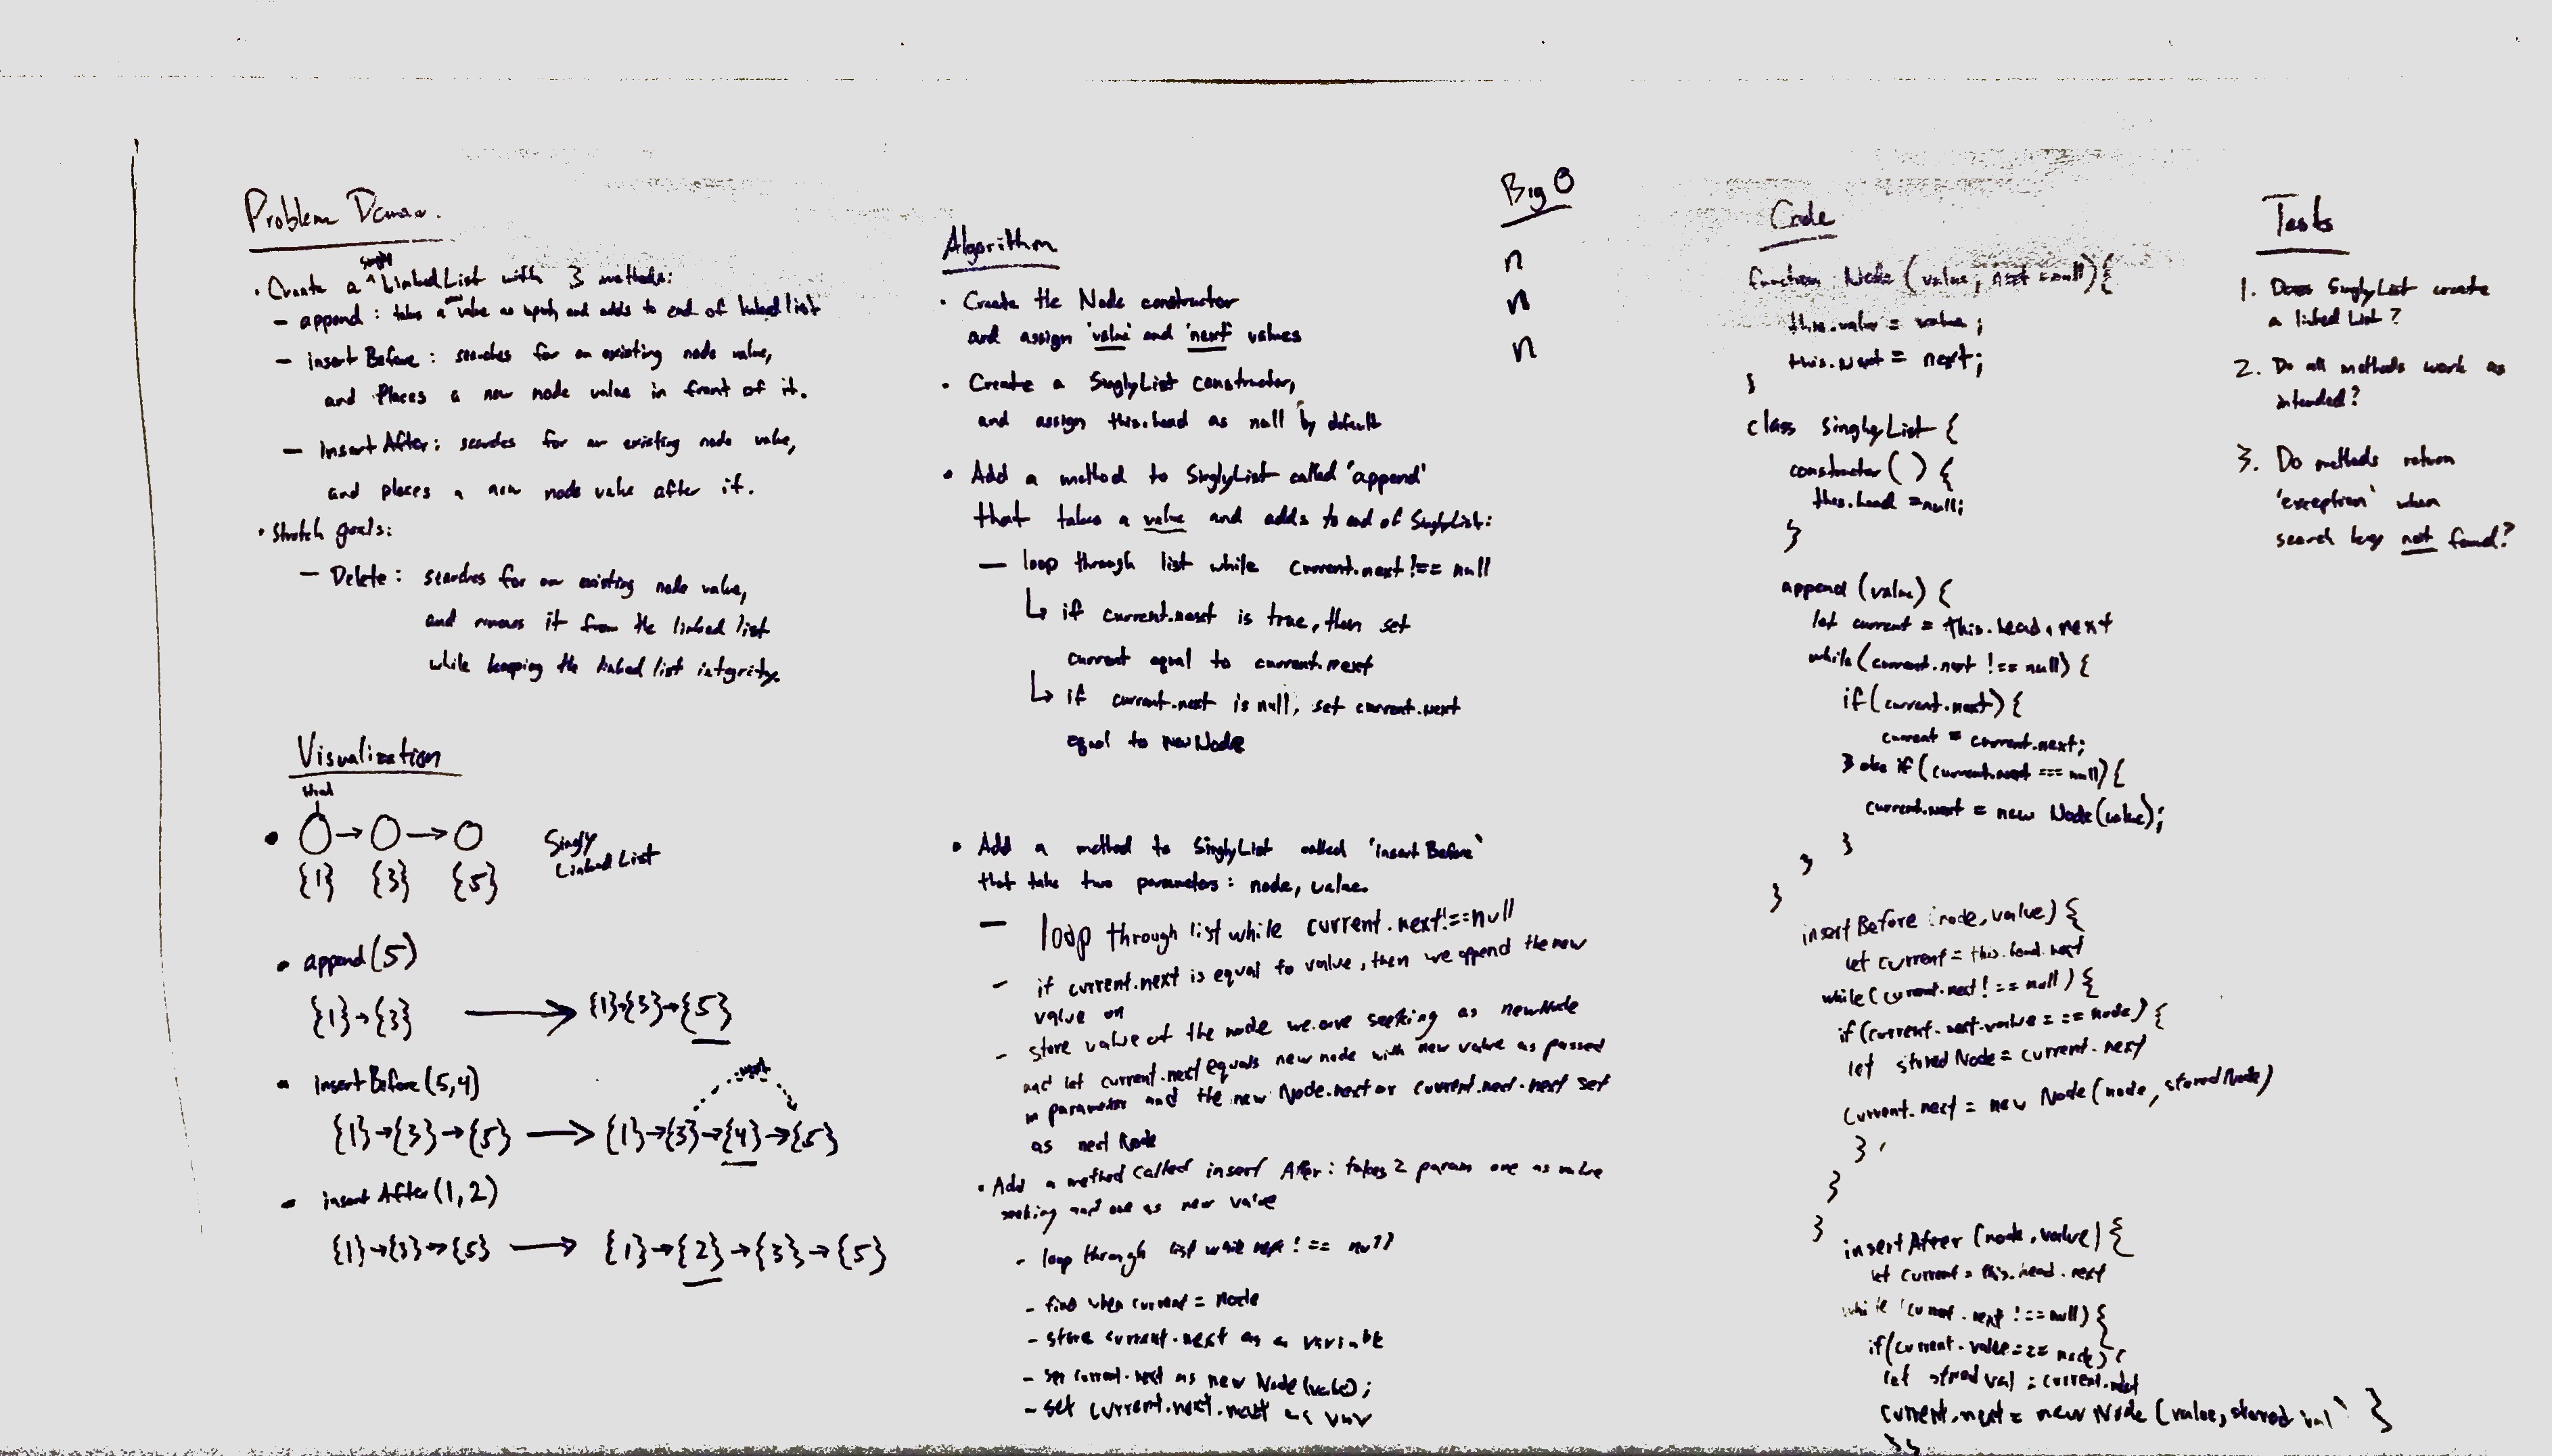 Problem Domain.
• Create a singly Linked List with 3 methods:
- append : takes a new value as input, and adds to end of linked list
- insert Before : searches for an existing node value,
and Places a new node value in front of it.
- insert After : searches for an existing node value,
and places a new node value after it.
• Stretch goals:
- Delete : searches for an existing node value,
and removes it from the linked list
while keeping the linked list integrity.
Visualization
Head
O → O → O
Singly
Linked List
{1} {3} {5}
• append (5)
{1} → {3} → {1}→{3}→{5}
• insert Before (5,4)
next
{1}→{3}→{5} → {1}→{3}→{4}→{5}
• insert After (1,2)
{1}→{3}→{5} → {1}→{2}→{3}→{5}
Algorithm
• Create the Node constructor
and assign 'value' and 'next' values
• Create a SinglyList constructor,
and assign this.head as null by default
• Add a method to SinglyList called 'append'
that takes a value and adds to end of SinglyList:
- loop through list while current.next !== null
↳ if current.next is true, then set
current equal to current.next
↳ if current.next is null, set current.next
equal to new Node
• Add a method to SinglyList called 'insert Before'
that take two parameters : node, value.
- loop through list while current.next !== null
- if current.next is equal to value, then we append the new
value on
- store value of the node we are seeking as newNode
and let current.next equals new node with new value as passed
in parameter and the new Node.next or current.next.next set
as next Node
• Add a method called insert After : takes 2 param one as value
seeking and one as new value
- loop through list while next !== null
- find when current = node
- store current.next as a variable
- set current.next as new Node (value);
- set current.next.next as var
Big O
n
n
n
Code
function Node (value, next = null) {
this.value = value ;
this.next = next;
}
class SinglyList {
constructor ( ) {
this.head = null;
}
append (value) {
let current = this.head.next
while (current.next !== null) {
if (current.next) {
current = current.next;
} else if (current.next === null) {
current.next = new Node (value);
}
}
}
insert Before (node, value) {
let current = this.head.next
while (current.next !== null) {
if (current.next.value === node) {
let storedNode = current.next
current.next = new Node (node, storedNode)
}
}
}
insert After (node, value) {
let current = this.head.next
while (current.next !== null) {
if (current.value === node) {
let stored val = current.next
current.next = new Node (value, stored val) }
}}
Tests
1. Does SinglyList create
a linked List ?
2. Do all methods work as
intended ?
3. Do methods return
'exception' when
search key not found ?